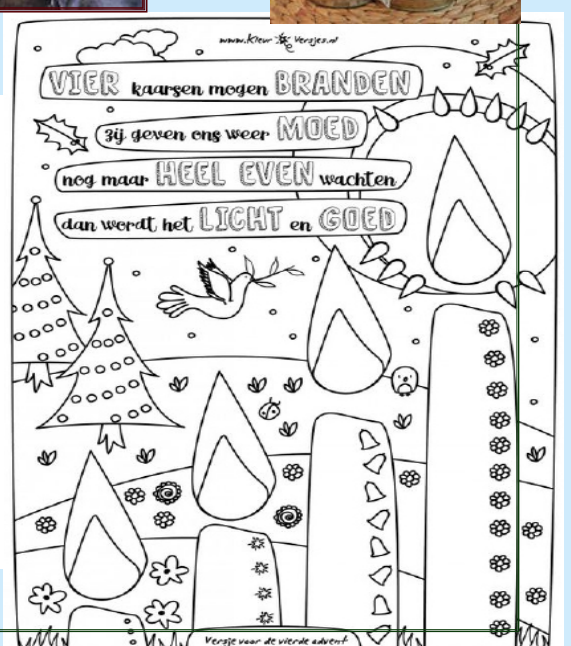 www.KleurVersjes.nl
VIER kaarsen mogen BRANDEN
zij geven ons weer MOED
nog maar HEEL EVEN wachten
dan wordt het LICHT en GOED
Versje voor de vierde advent